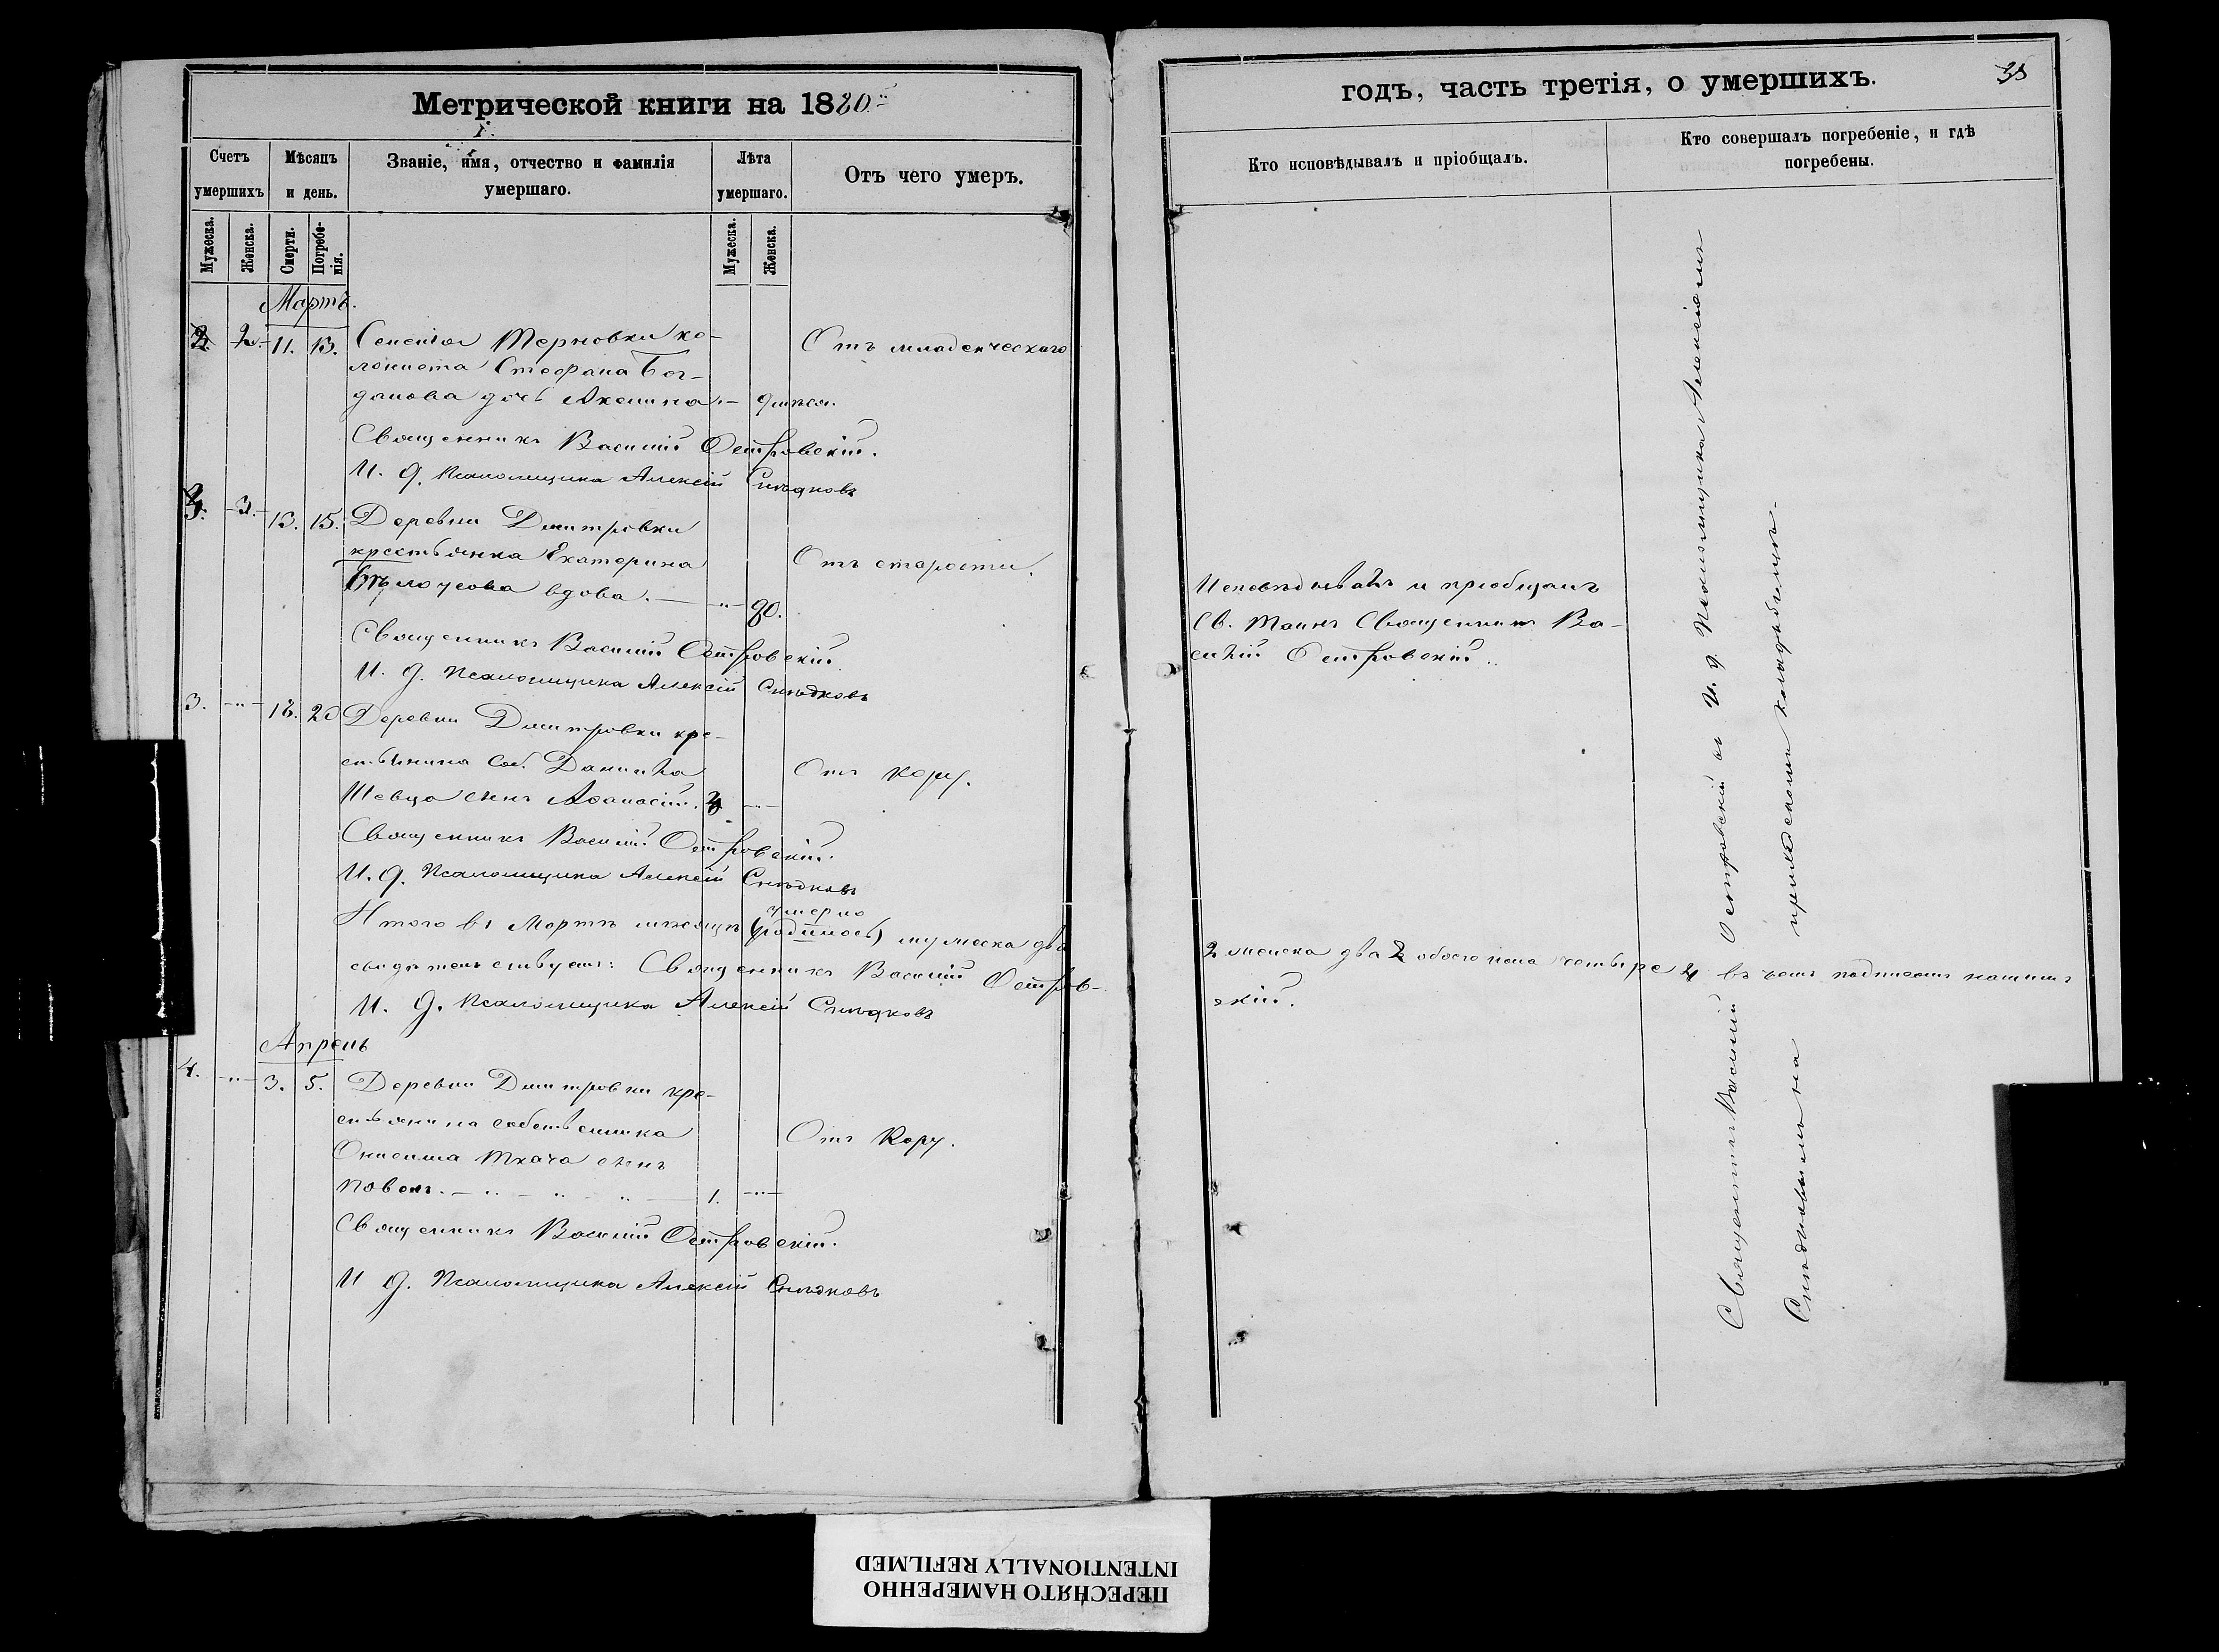 Метрической книги на 1880й
Счетъ умершихъ
Мѣсяцъ и день.
Званіе, имя, отчество и фамилія умершаго.
Лѣта умершаго.
Отъ чего умеръ.
Мужеска.
Женска.
Смерти.
Погребенія.
Мужеска.
Женска.
Мартъ.
2. 11. 13. Селенія Терновки ко-
лониста Стефана Бог-
данова дочь Акелина.—
Отъ младенческаго
Священникъ Василій Островскій.
И. д. Псаломщика Алексій Снѣдковъ
3. 13. 15. Деревни Димитровки
крестьянка Екатерина
Бѣлоусова вдова. — „ — 90.
Отъ старости.
Священникъ Василій Островскій.
И. д. Псаломщика Алексій Снѣдковъ
3. — „ — 18. 20 Деревни Димитровки кре-
стьянина Соб. Даніила
Шевца сынъ Аѳанасій.
Отъ кору.
Священникъ Василій Островскій.
И. д. Псаломщика Алексій Снѣдковъ
умерло
Итого въ Мартѣ мѣсяцѣ (родилось) мужеска два
свидѣтельствуемъ: Священникъ Василій Остров-
И. д. Псаломщика Алексій Снѣдковъ
Апрель
4. — „ — 3. 5. Деревни Димитровки кре-
стьянина собственника
Онисима Ткача сынъ
Павелъ. — „ — „ — „ — 1. — „ —
Отъ Кору.
Священникъ Василій Островскій.
И д. Псаломщика Алексій Снѣдковъ
годъ, часть третія, о умершихъ.
35
Кто исповѣдывалъ и пріобщалъ.
Кто совершалъ погребеніе, и гдѣ погребены.
Исповѣдывалъ и пріобщалъ
Св. Таинъ Священникъ Ва-
силій Островскій.
2 женска два 2 обоего пола четыре 4 въ чемъ подписомъ нашимъ
скій.
Священникъ Василій Островскій съ И. д. Псаломщика Алексіемъ
Снѣдковымъ на приходскомъ кладбищѣ.
ПЕРЕСНЯТО НАМЕРЕННО
INTENTIONALLY REFILMED